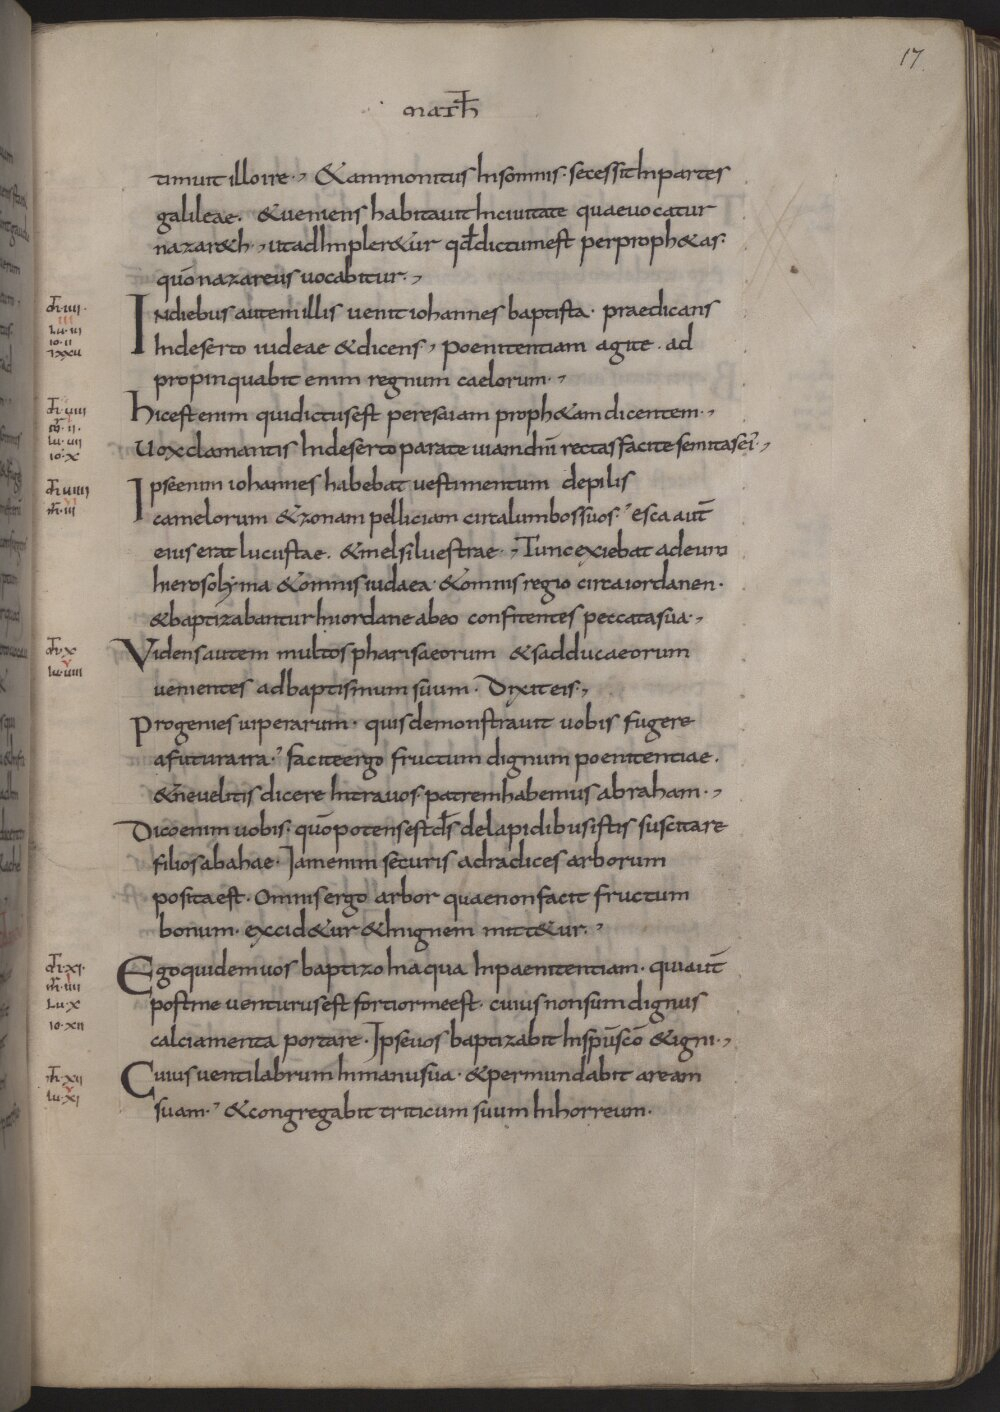 17
math
timuit illo ire. & ammonitus In somnis. secessit In partes
galileae. & ueniens habitauit In ciuitate quae uocatur
nazar&h, ut adImpler&ur qd dictum est per proph&as.
quō nazareus uocabitur.,
mt. iii.
In diebus autem illis uenit iohannes baptista. praedicans
lu. iii
io. ii
In deserto iudeae & dicens, poenitentiam agite. ad
propinquabit enim regnum caelorum.,
mt. uiii
hic est enim qui dictus est per esaiam proph&am dicentem.,
mr. ii.
lu. uii
io. x
Uox clamantis In deserto parate uiam dni rectas facite semitas ei.,
mt. uiiii
Ipse enim iohannes habebat uestimentum de pilis
mr. iii
camelorum & zonam pelliciam circa lumbos suos. esca aut
eius erat lucustae. & mel siluestrae., Tunc exiebat ad eum
hierosolyma & omnis iudaea. & omnis regio circa iordanen.
& baptizabantur In iordane ab eo confitentes peccata sua.,
mt. x
Videns autem multos pharisaeorum & sadducaeorum
lu. uiii
uenientes ad baptismum suum. Dixit eis.,
Progenies uiperarum. quis demonstrauit uobis fugere
a futura ira. facite ergo fructum dignum poenitentiae.
& ne uelitis dicere Intra uos patrem habemus abraham.,
Dico enim uobis. quō potens est ds de lapidibus istis suscitare
filios abahae. Iam enim securis ad radices arborum
posita est. Omnis ergo arbor quae non facit fructum
bonum. excid&ur & In ignem mitt&ur.,
mt. xi.
Ego quidem uos baptizo In aqua In paenitentiam. qui aut
mr. iiii
lu. x
post me uenturus est fortior me est. cuius non sum dignus
io. xii
calciamenta portare. Ipse uos baptizabit In spu sco & igni.,
mt. xii
Cuius uentilabrum In manu sua. & permundabit aream
lu. xi
suam. & congregabit triticum suum In horreum.